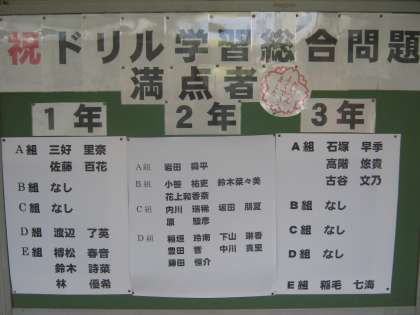 祝ドリル学習総合問題
満点者
1年
A組 三好 里奈
佐藤 百花
B組 なし
C組 なし
D組 渡辺 了英
E組 樽松 春音
鈴木 詩菜
林 優希
2年
A組 岩田 陽平
B組 小笹 祐吏 鈴木菜々美
花上和香奈
C組 内川 瑞稀 坂田 朋夏
原 駿彦
D組 稲垣 玲南 下山 琳香
豊田 晋 中川 真里
藤田 恒介
3年
A組 石塚 早季
高階 悠貴
古谷 文乃
B組 なし
C組 なし
D組 なし
E組 稲毛 七海